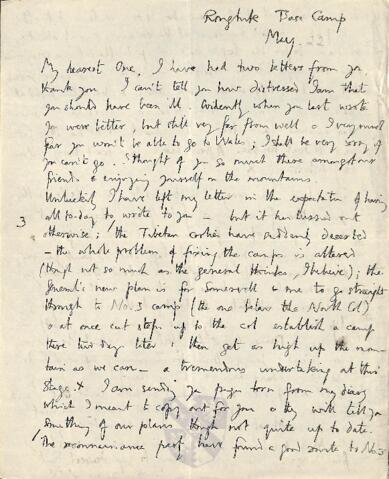 Rongbuk Base Camp
May 22
My dearest One, I have had two letters from you
thank you I can't tell you how distressed I am that
you should have been ill. Evidently when you last wrote
you were better, but still very far from well & I very much
fear you won't be able to go to Wales; I shall be very sorry if
you can't go. I thought of you so much there amongst our
friends & enjoying yourself in the mountains.
Unluckily I have left my letter in the expectation of having
all to-day to write to you – but it has turned out
3
otherwise; the Tibetan coolies have suddenly deserted
– the whole problem of fixing the camps is altered
(though not so much as the general thinks, I believe); the
General's new plan is for Somervell & me to go straight
through to No. 3 camp (the one below the North Col)
& at once cut steps up to the col establish a camp
there two days later & then get as high up the moun-
tain as we can – a tremendous undertaking at this
stage. I am sending you pages torn from my diary
which I meant to copy out for you & they will tell you
something of our plans though not quite up to date.
The reconnaissance party have found a good route to No 3